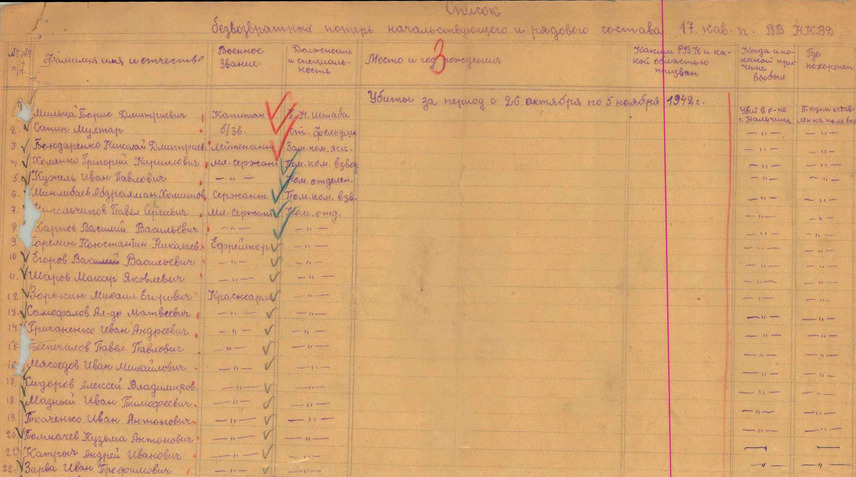 Список
безвозвратных потерь начальствующего и рядового состава 17 кав. п. ВВ НКВД
№№ п/п Фамилия имя и отчество Военное Звание Должность и специаль-ность Место и год рождения Каким РВК и ка-кой областью призван Когда и по какой при чине выбыл Где похоронен
3
Убиты за период с 26 октября по 5 ноября 1942 г.
Борис Дмитриевич Капитан Н. Штаба г. Нальчика
2. Сатин Мухтар б/зв. Ст. -"- -"-
3. Бондаренко Николай Дмитриев Лейтенант Зам. ком. эск. -"- -"-
4. Хоменко Григорий Кириллович Мл. сержант Пом. ком. взвод -"- -"-
5. Кужель Иван Павлович -"- Ком. отделен. -"- -"-
6. Сержант Пом. ком. взв. -"- -"-
7. Павел Сергеевич Мл. сержант Ком. отд. -"- -"-
8 Карпов Василий Васильевич -"- -"- -"- -"-
9 Константин Николаев Ефрейтор -"- -"- -"-
10 Егоров Василий Васильевич -"- -"- -"- -"-
11. Шаров Макар Яковлевич -"- -"- -"- -"-
12 Михаил Егорович Красноарм -"- -"- -"-
13 Самофалов Ал-др Матвеевич -"- -"- -"- -"-
14 Гричаненко Иван Андреевич -"- -"- -"- -"-
15. Беспечалов Павел Павлович -"- -"- -"- -"-
16 Мясоедов Иван Михайлович -"- -"- -"- -"-
17. Сидоров Алексей Владимиров -"- -"- -"- -"-
18 Мазный Иван Тимофеевич -"- -"- -"- -"-
19. Ткаченко Иван Антонович -"- -"- -"- -"-
20 Толмачев Кузьма Антонович -"- -"- -"- -"-
21 Катрыч Андрей Иванович -"- -"-
22. Зарва Иван Трофимович -"- -"- -"- -"-